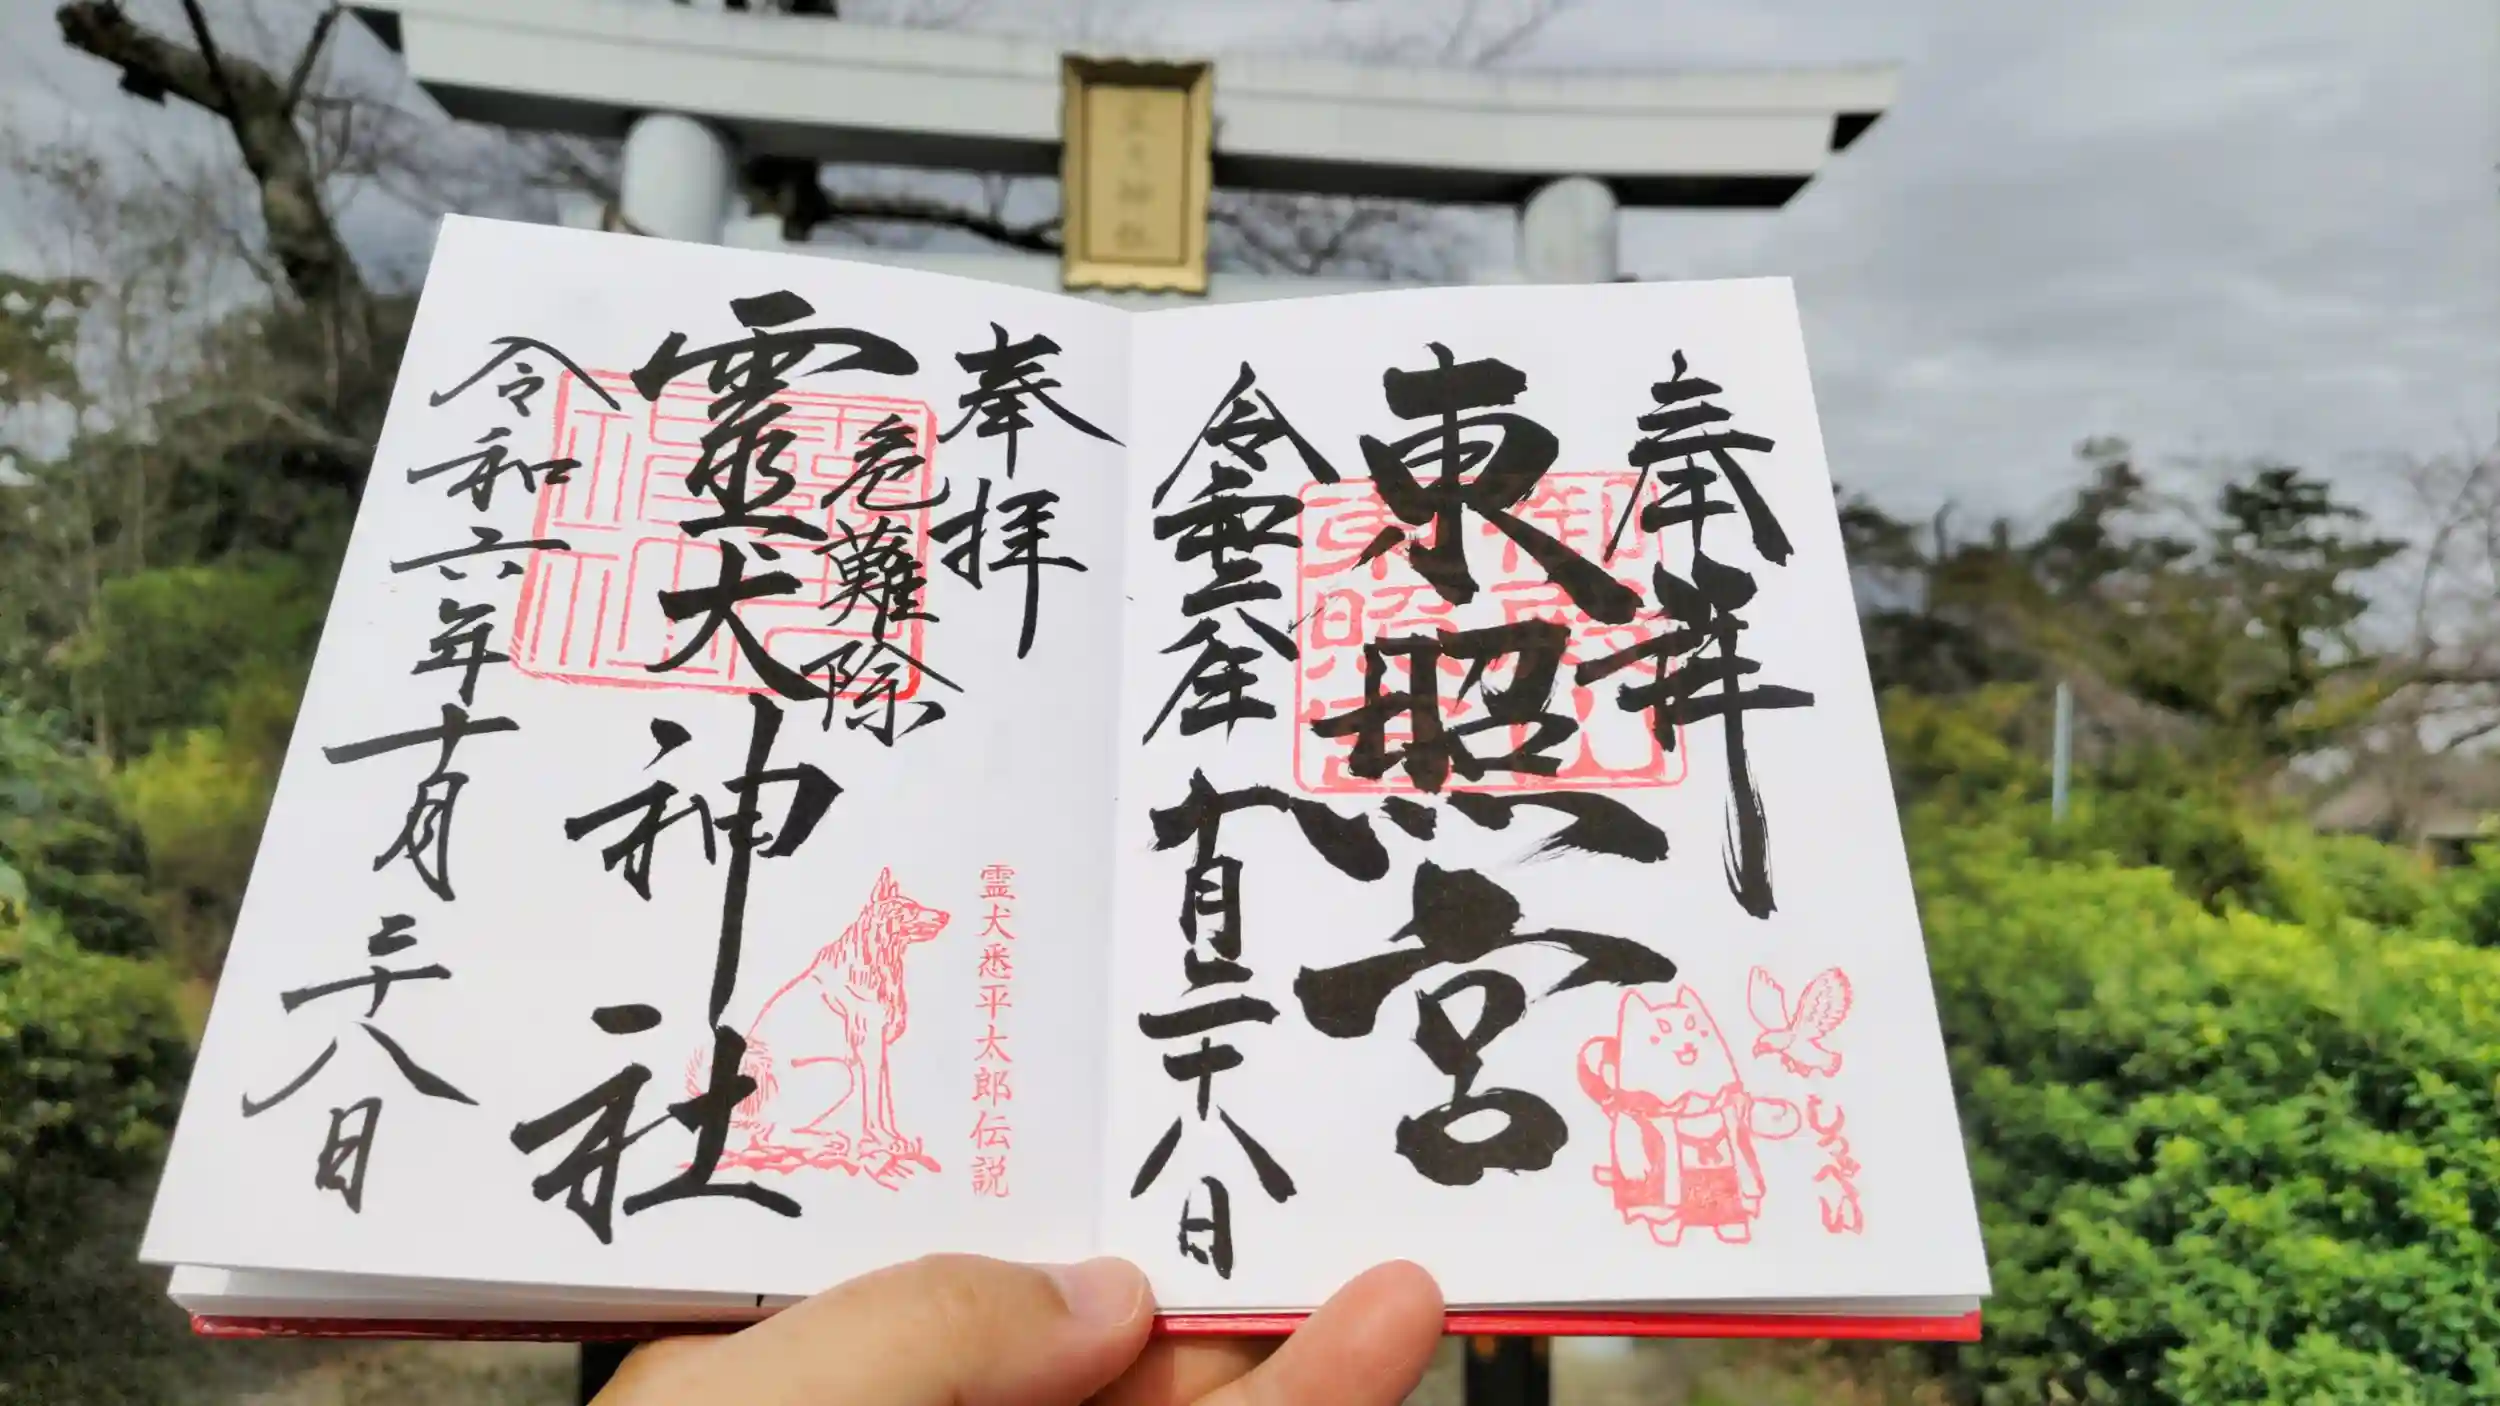 神社
奉拝
東照宮
東照宮
十月二十八日
しっぺい
奉拝
危難除
靈犬神社
令和六年十月二十八日
霊犬悉平太郎伝説